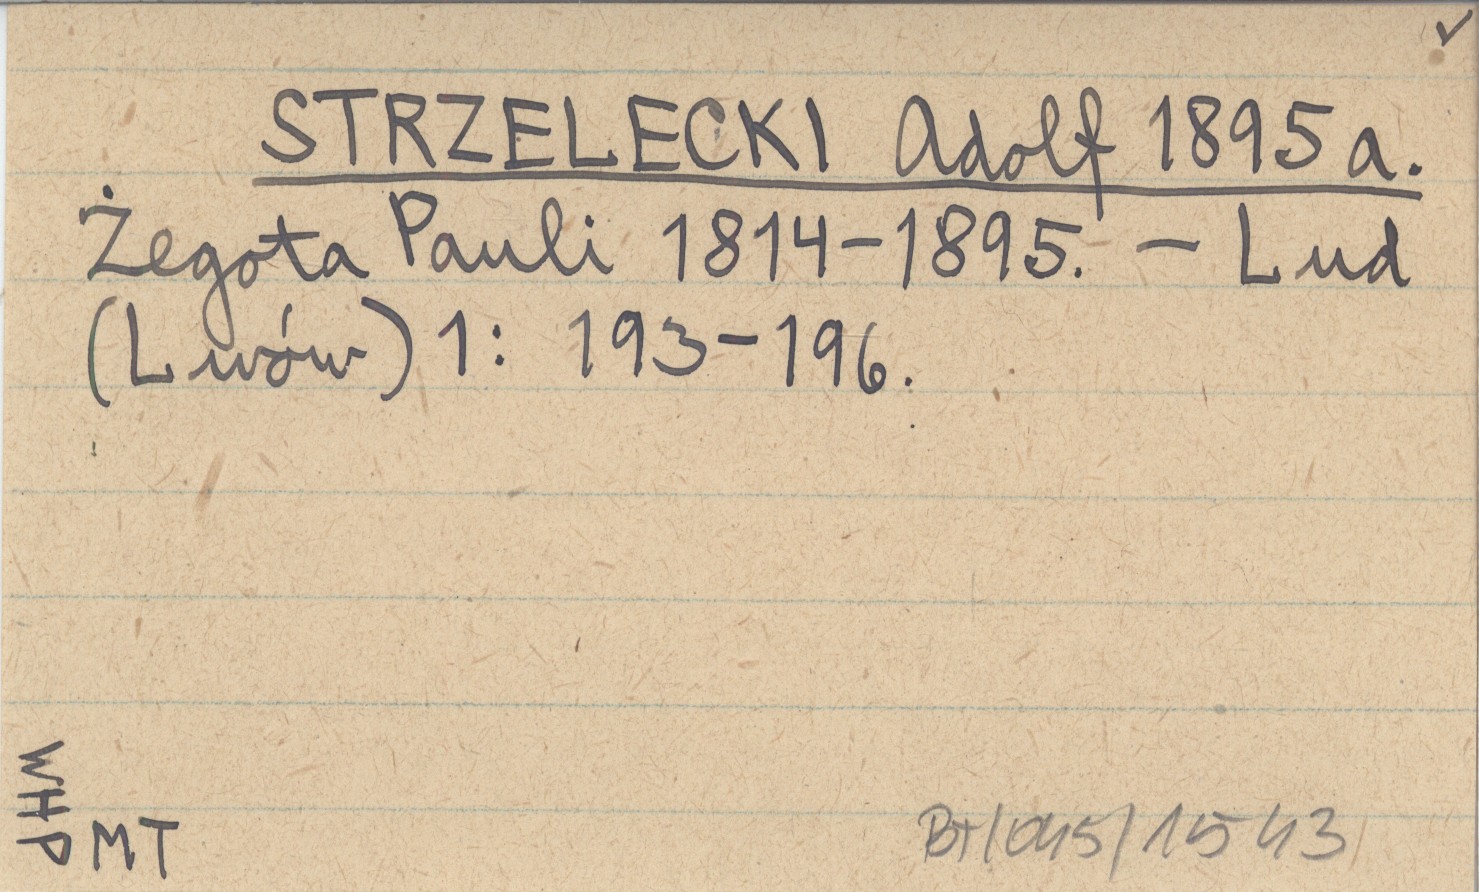 ✓
STRZELECKI Adolf 1895a.
Żegota Pauli 1814-1895. - Lud
(Lwów) 1: 193-196.
WHP
MT
BT/045/1543